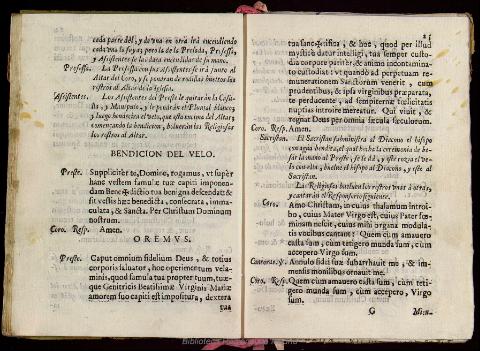 ceda parte del, y de una en otra irà encendiendo
cada una la suya; pero la de la Prelada, Professa,
y Asistentes se las dara encendidas de su mano.
Professa. La Professa con sus Asistentes se irà junto al
Altar del Coro, y se pondran de rodillas bueltos los
rostros al Altar de la Iglesia.
Asistentes. Los Asistentes del Preste le quitaràn la Casu-
lla, y Manipulo, y le pondràn el Pluvial blanco,
y luego bendecirà el velo, que està encima del Altar; y
comenzando la bendicion, bolueràn las Religiosas
los rostros al Altar.
BENDICION DEL VELO.
Preste. Suppliciter te, Domine, rogamus, ut supèr
hanc vestem famulæ tuæ capiti imponen-
dam Benedictio tua benigna descendat: &
sit vestis hæc benedicta, consecrata, imma-
culata, & Sancta. Per Christum Dominum
nostrum.
Coro. Resp. Amen.
OREMVS.
Preste. Caput omnium fidelium Deus, & totius
corporis salvator, hoc operimentum vela-
minis, quod famula tua propter tuum, tuæ-
que Genitricis Beatissimæ Virginis Mariæ
amorem suo capiti est impositura, dextera
tua
25
tua sanctifica, & hoc, quod per illud
mysticè datur intelligi, tua semper custo-
dia corpore pariter, & animo incontamina-
to custodiat: ut quando ad perpetuam re-
munerationem Sanctorum venerit, cum
prudentibus, & ipsa virginibus præparata,
te perducente, ad sempiternæ fœlicitatis
nuptias introire mereatur. Qui vivit, &
regnat Deus per omnia sæcula sæculorum.
Coro. Resp. Amen.
Sacristan. El Sacristan subministra al Diacono el hisopo
con agua bendita, el qual hecha la ceremonia de be-
sar la mano al Preste, se le dà, y este rocia el ve-
lo con ella, buelve el hisopo al Diacono, y este al
Sacristan.
La Religiosas buelven los rostros unas à otras,
y cantaràn el Responsorio siguiente.
Coro. Amo Christum, in cuius thalamum introi-
bo, cuius Mater Virgo est, cuius Pater fœ-
minam nescit, cuius mihi organa modula-
tis vocibus cantant: Quem cùm amavero
casta sum, cùm tetigero munda sum, cùm
accepero Virgo sum.
Cantoras. ℣. Annulo fidei suæ subarrhauit me, & im-
mensis monilibus ornauit me.
Coro. Resp. Quem cùm amauero casta sum, cùm teti-
gero munda sum, cùm accepero, Virgo
sum.
G